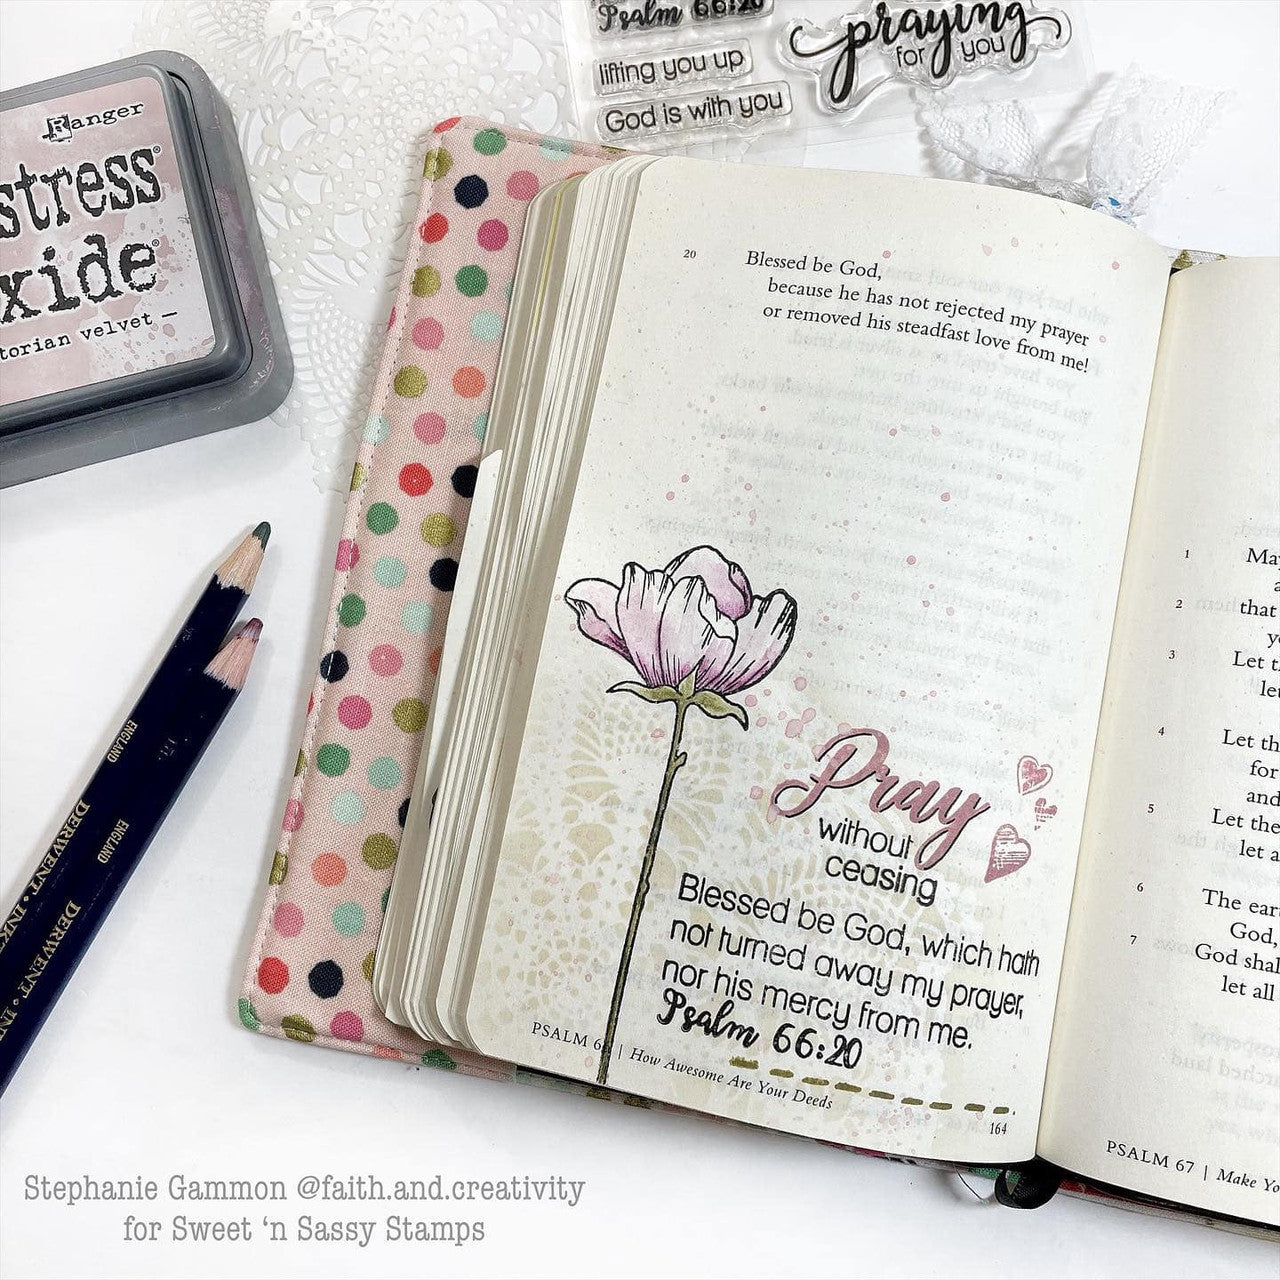 Psalm 66:20
lifting you up
God is with you
praying
for you
Ranger
stress
xide
torian velvet
20 Blessed be God,
because he has not rejected my prayer
or removed his steadfast love from me!
Pray
without
ceasing
Blessed be God, which hath
not turned away my prayer,
nor his mercy from me.
Psalm 66:20
PSALM 6 | How Awesome Are Your Deeds
164
1 May
2 that
3 Let t
let
4 Let th
for
and
5 Let the
let a
6 The ear
God,
7 God shal
let all
PSALM 67 | Make Yo
ENGLAND
DERWENT · INK
ENGLAND
DERWENT · IN
Stephanie Gammon @faith.and.creativity
for Sweet ‘n Sassy Stamps